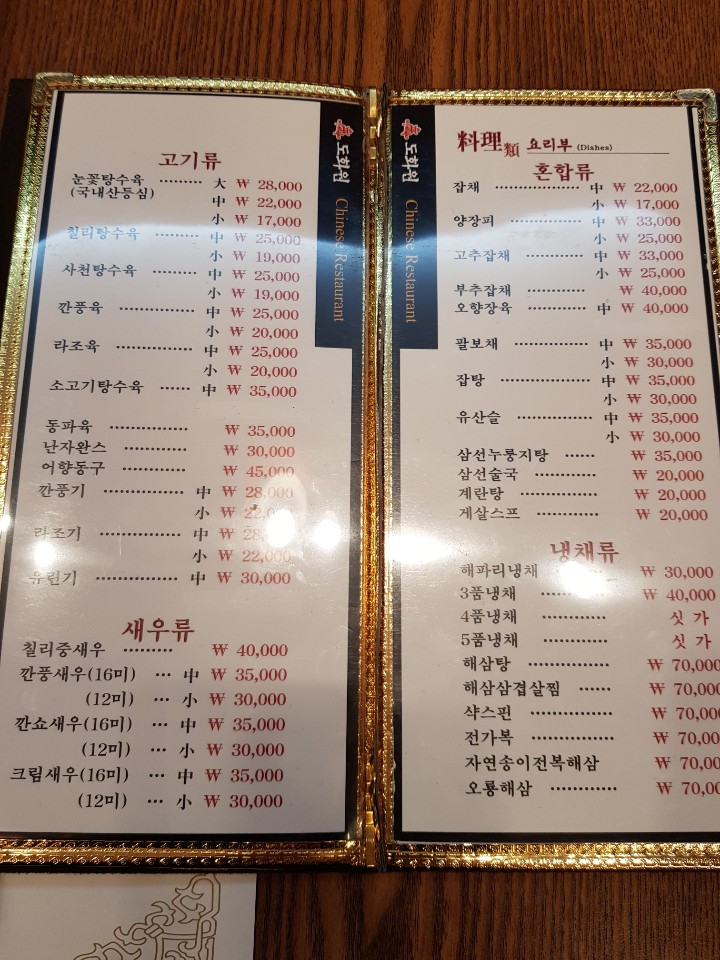 도화원
Chinese Restaurant
고기류
눈꽃탕수육 ········· 大 ₩ 28,000
(국내산등심) 中 ₩ 22,000
小 ₩ 17,000
칠리탕수육 ········· 中 ₩ 25,000
小 ₩ 19,000
사천탕수육 ········· 中 ₩ 25,000
小 ₩ 19,000
깐풍육 ··············· 中 ₩ 25,000
小 ₩ 20,000
라조육 ··············· 中 ₩ 25,000
小 ₩ 20,000
소고기탕수육 ······ 中 ₩ 35,000
동파육 ··············· ₩ 35,000
난자완스 ············ ₩ 30,000
어향동구 ············ ₩ 45,000
깐풍기 ··············· 中 ₩ 28,000
小 ₩ 22,000
라조기 ··············· 中 ₩ 28,
小 ₩ 22,000
유린기 ··············· 中 ₩ 30,000
새우류
칠리중새우 ········· ₩ 40,000
깐풍새우(16미) ··· 中 ₩ 35,000
(12미) ··· 小 ₩ 30,000
깐쇼새우(16미) ··· 中 ₩ 35,000
(12미) ··· 小 ₩ 30,000
크림새우(16미) ··· 中 ₩ 35,000
(12미) ··· 小 ₩ 30,000
도화원
Chinese Restaurant
料理類 요리부 (Dishes)
혼합류
잡채 ·················· 中 ₩ 22,000
小 ₩ 17,000
양장피 ··············· 中 ₩ 33,000
小 ₩ 25,000
고추잡채 ············ 中 ₩ 33,000
小 ₩ 25,000
부추잡채 ············ ₩ 40,000
오향장육 ············ 中 ₩ 40,000
팔보채 ··············· 中 ₩ 35,000
小 ₩ 30,000
잡탕 ·················· 中 ₩ 35,000
小 ₩ 30,000
유산슬 ··············· 中 ₩ 35,000
小 ₩ 30,000
삼선누룽지탕 ······ ₩ 35,000
삼선술국 ············ ₩ 20,000
계란탕 ··············· ₩ 20,000
게살스프 ············ ₩ 20,000
냉채류
해파리냉채 ········· ₩ 30,000
3품냉채 ············ ₩ 40,000
4품냉채 ············ 싯 가
5품냉채 ············ 싯 가
해삼탕 ··············· ₩ 70,000
해삼삼겹살찜 ······ ₩ 70,000
샥스핀 ··············· ₩ 70,000
전가복 ··············· ₩ 70,00
자연송이전복해삼 ₩ 70,00
오룡해삼 ············ ₩ 70,00